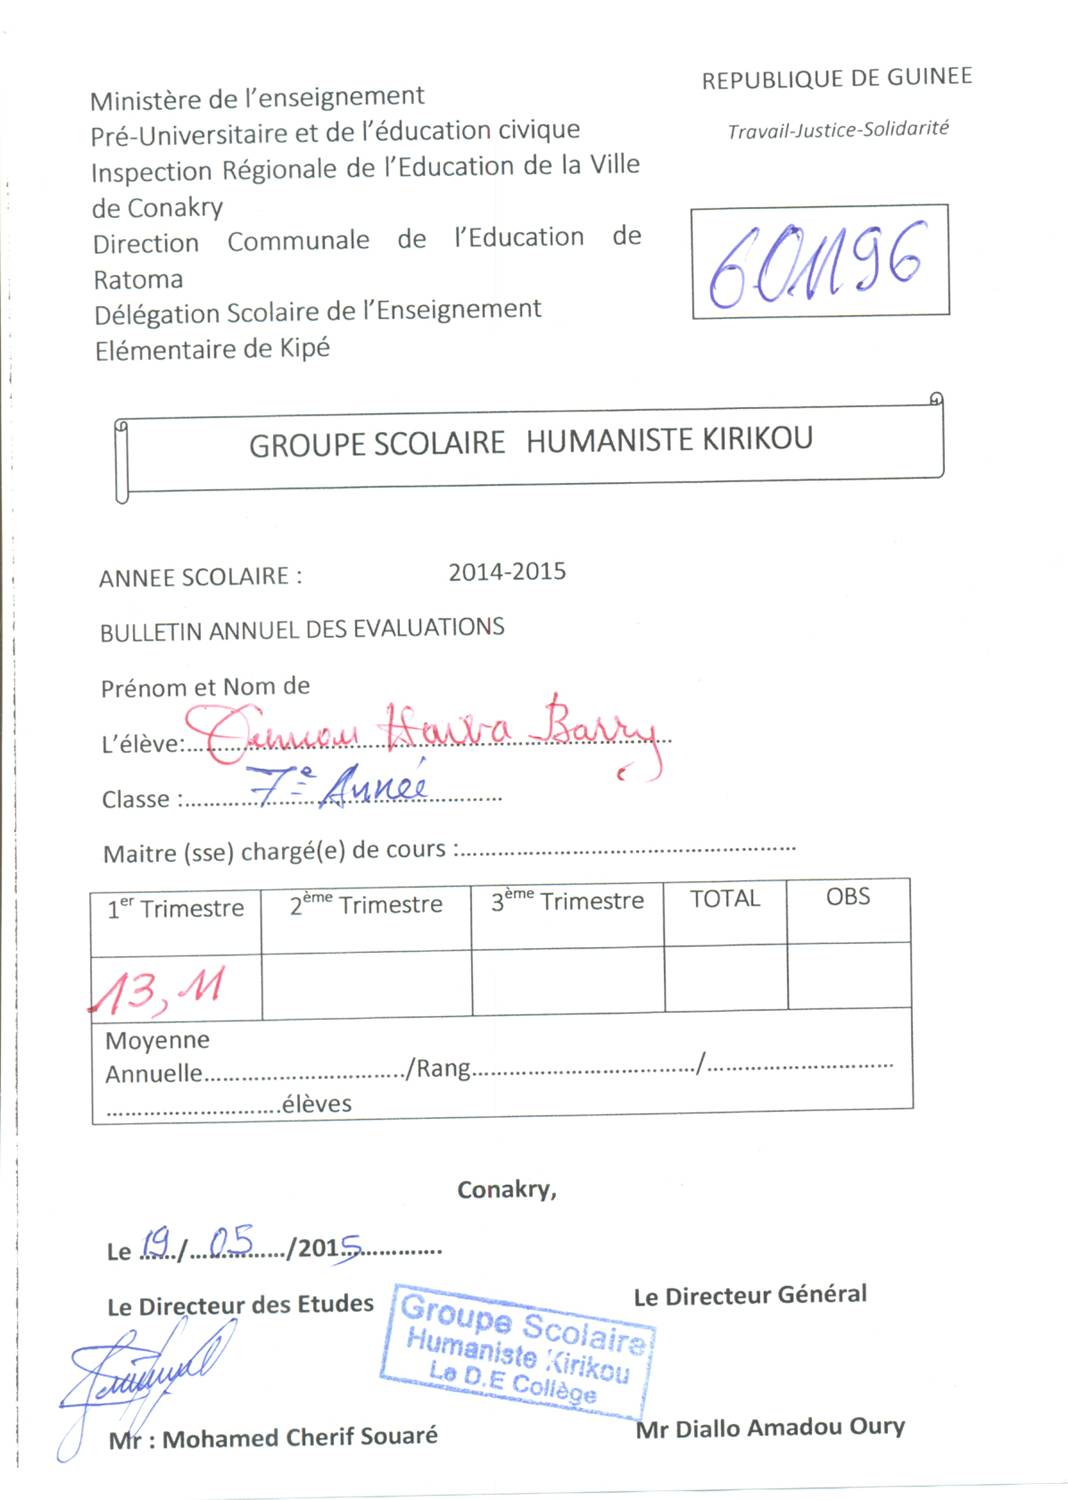 Ministère de l'enseignement
Pré-Universitaire et de l'éducation civique
Inspection Régionale de l'Education de la Ville
de Conakry
Direction Communale de l'Education de
Ratoma
Délégation Scolaire de l'Enseignement
Elémentaire de Kipé
REPUBLIQUE DE GUINEE
Travail-Justice-Solidarité
601196
GROUPE SCOLAIRE HUMANISTE KIRIKOU
ANNEE SCOLAIRE : 2014-2015
BULLETIN ANNUEL DES EVALUATIONS
Prénom et Nom de
L'élève: Hawa Barry
Classe : 7e Année
Maitre (sse) chargé(e) de cours :
1er Trimestre 2ème Trimestre 3ème Trimestre TOTAL OBS
13,11
Moyenne
Annuelle............................../Rang................................./............................
...........................élèves
Conakry,
Le 19/05/2015
Le Directeur des Etudes
Le Directeur Général
Groupe Scolaire
Humaniste Kirikou
Le D.E Collège
Mr : Mohamed Cherif Souaré
Mr Diallo Amadou Oury